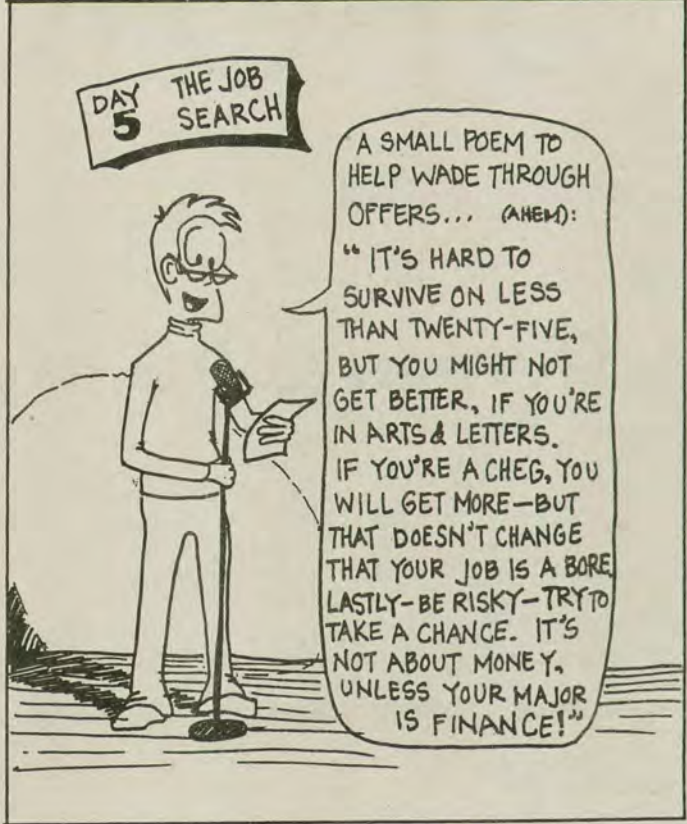 DAY THE JOB
5 SEARCH
A SMALL POEM TO
HELP WADE THROUGH
OFFERS... (AHEM):
"IT'S HARD TO
SURVIVE ON LESS
THAN TWENTY-FIVE,
BUT YOU MIGHT NOT
GET BETTER, IF YOU'RE
IN ARTS & LETTERS.
IF YOU'RE A CHEG, YOU
WILL GET MORE—BUT
THAT DOESN'T CHANGE
THAT YOUR JOB IS A BORE.
LASTLY—BE RISKY—TRY TO
TAKE A CHANCE. IT'S
NOT ABOUT MONEY,
UNLESS YOUR MAJOR
IS FINANCE!"